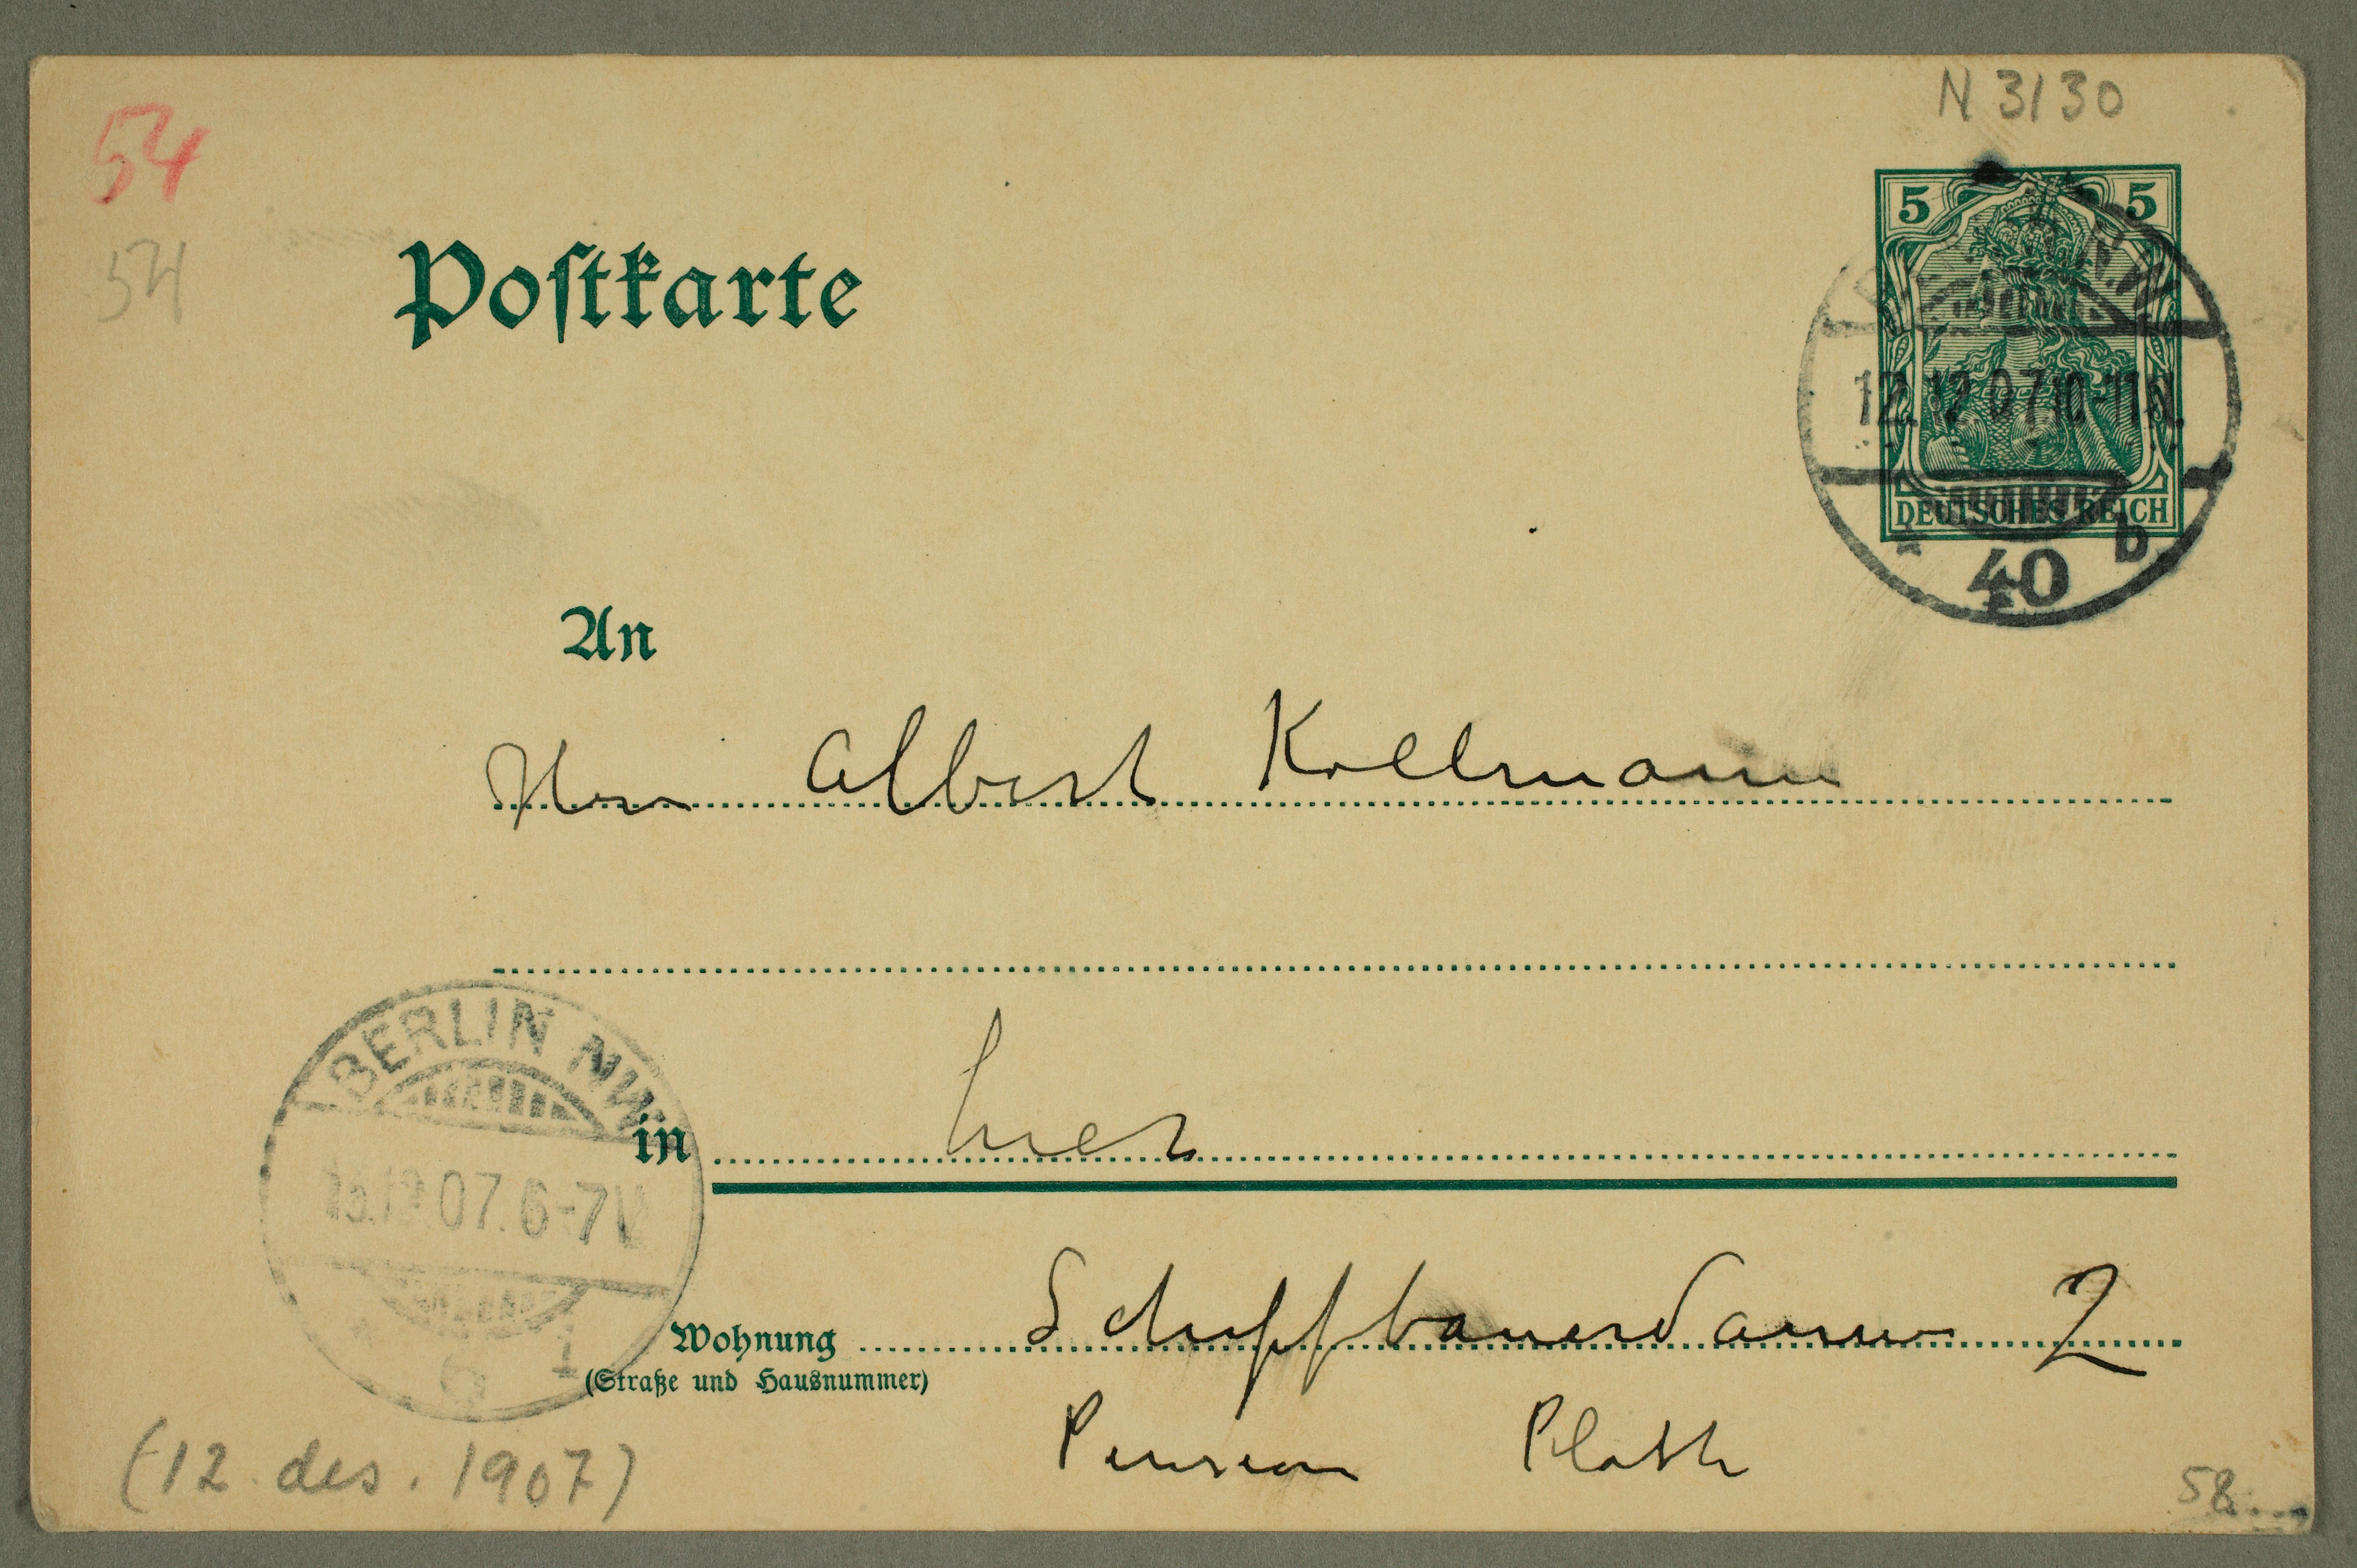 N 3130
54
54
Postkarte
5 5
12.12.07.10-11N.
DEUTSCHES REICH
b
40
An
Herrn Albert Kollmann
BERLIN NW
in hier
07. 6-7V
Wohnung Schiffbauerdamm 2
(Straße und Hausnummer)
Pension Plath
(12. des. 1907)
58